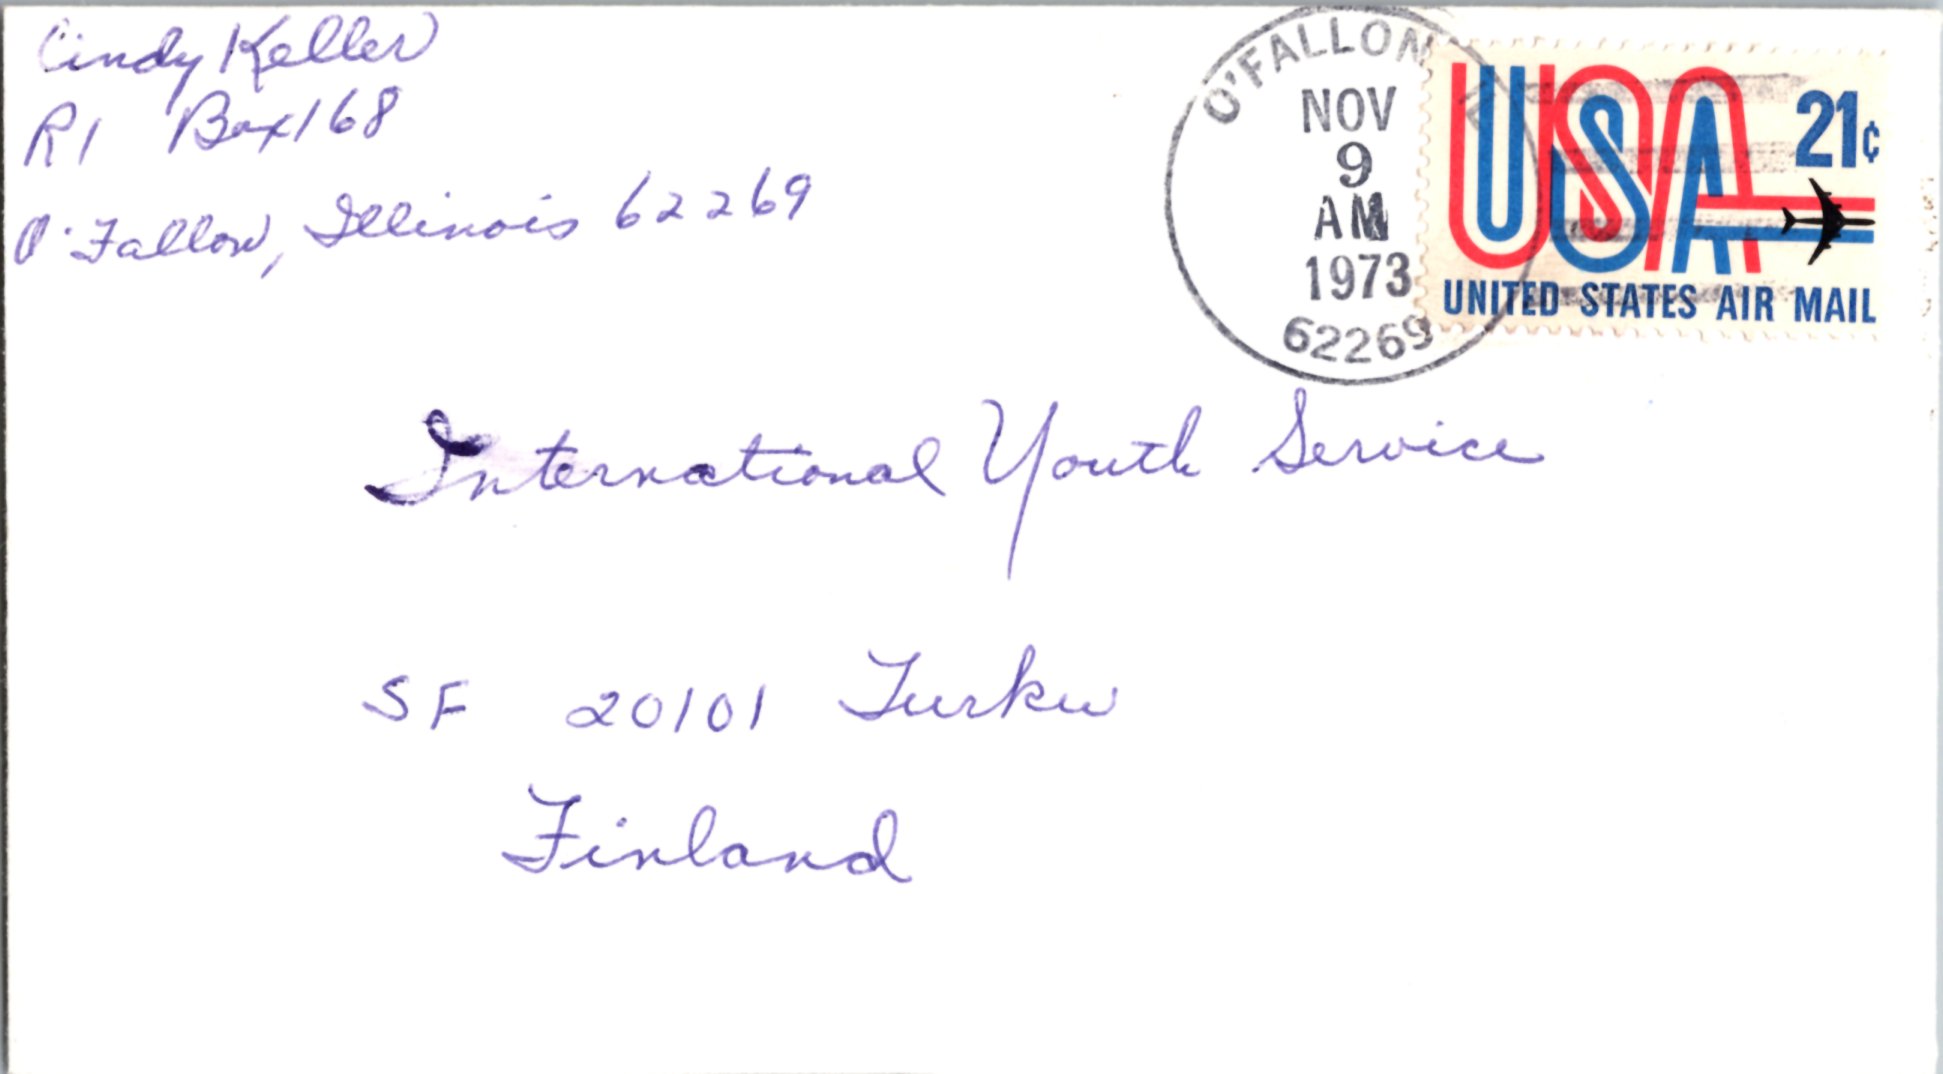 Cindy Keller
R1 Box 168
O'Fallon, Illinois 62269
O'FALLON IL
NOV
9
AM
1973
62269
USA 21¢
UNITED STATES AIR MAIL
International Youth Service
SF 20101 Turku
Finland